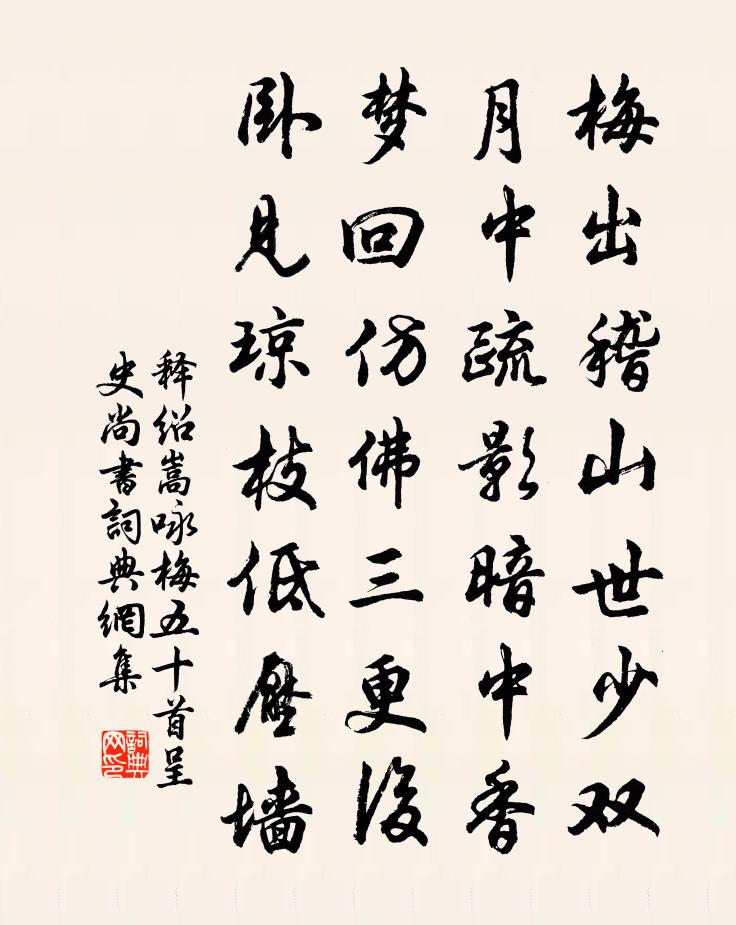 梅出稽山世少双
月中疏影暗中香
梦回仿佛三更後
卧见琼枝低压墙
释绍嵩咏梅五十首呈
史尚書詞典網集
詞典
网印